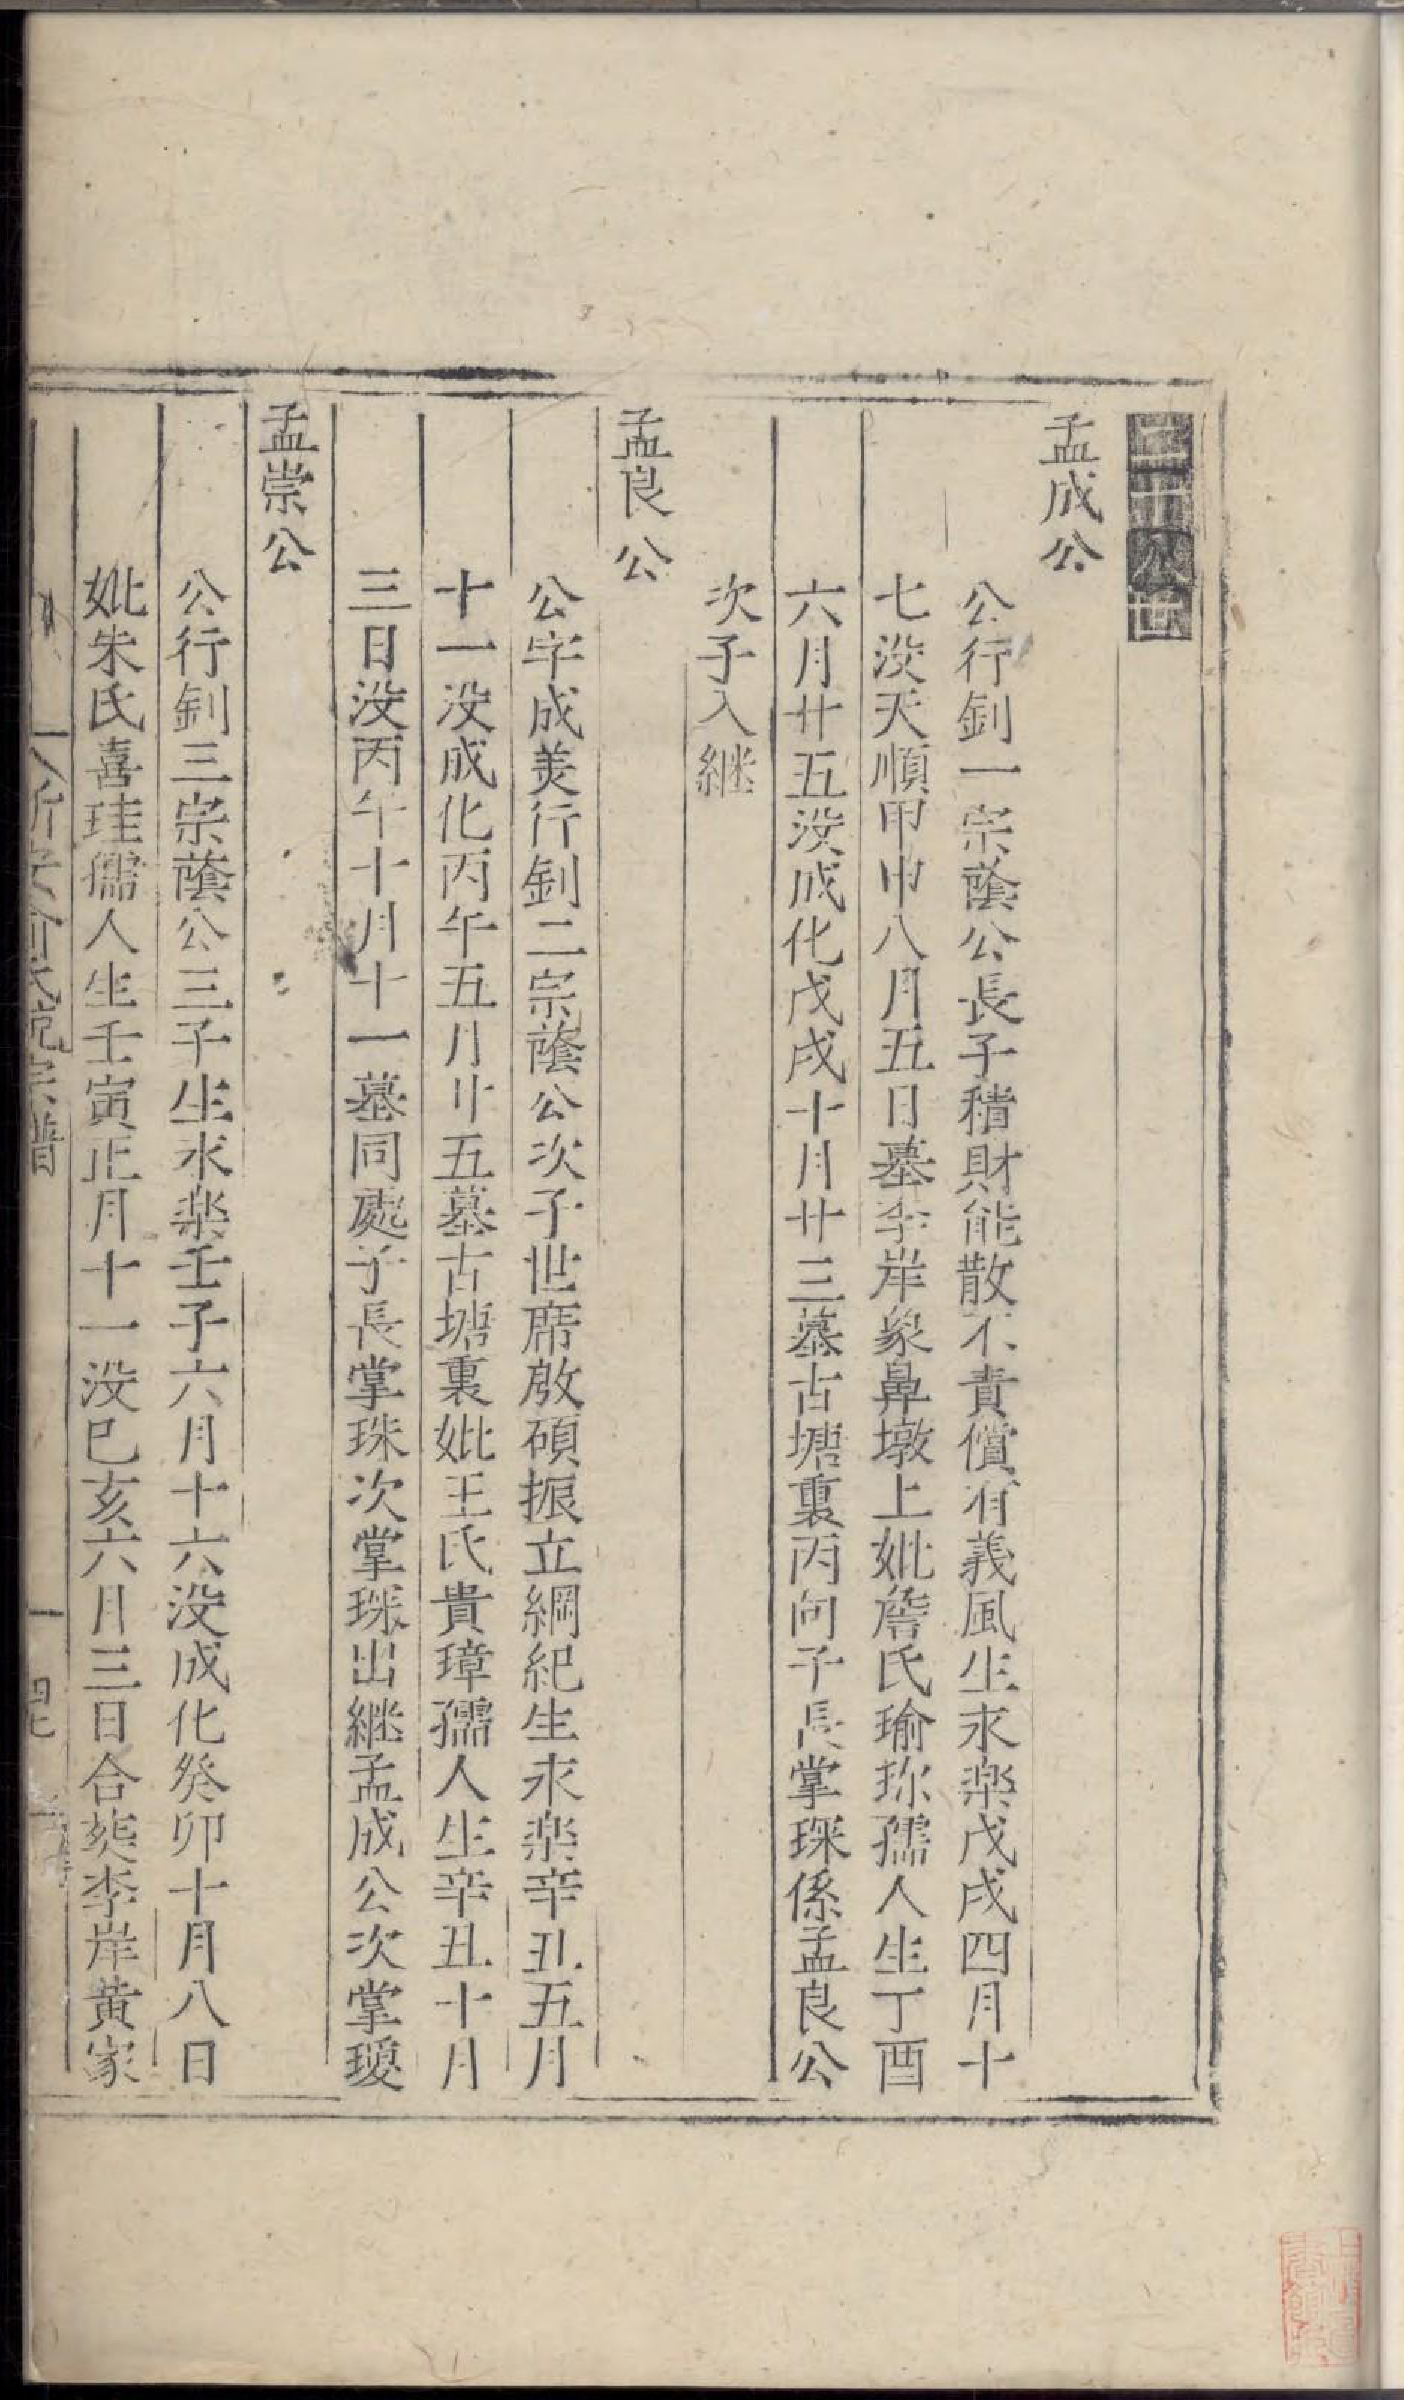 二十八世
孟成公
公行釗一宗蔭公長子積財能散不責償有義風生永楽戊戌四月十
七没天順甲申八月五日墓李岸象鼻墩上妣詹氏瑜珎孺人生丁酉
六月廿五没成化戊戌十月廿三墓古塘裏丙向子長掌琛係孟良公
次子入継
孟良公
公字成美行釗二宗蔭公次子世席啟碩振立綱紀生永楽辛丑五月
十一没成化丙午五月廿五墓古塘裏妣王氏貴璋孺人生辛丑十月
三日没丙午十月十一墓同處子長掌珠次掌琛出継孟成公次掌瓊
孟崇公
公行釗三宗蔭公三子生永楽壬子六月十六没成化癸卯十月八日
妣朱氏喜珪孺人生壬寅正月十一没巳亥六月三日合葬李岸黄家